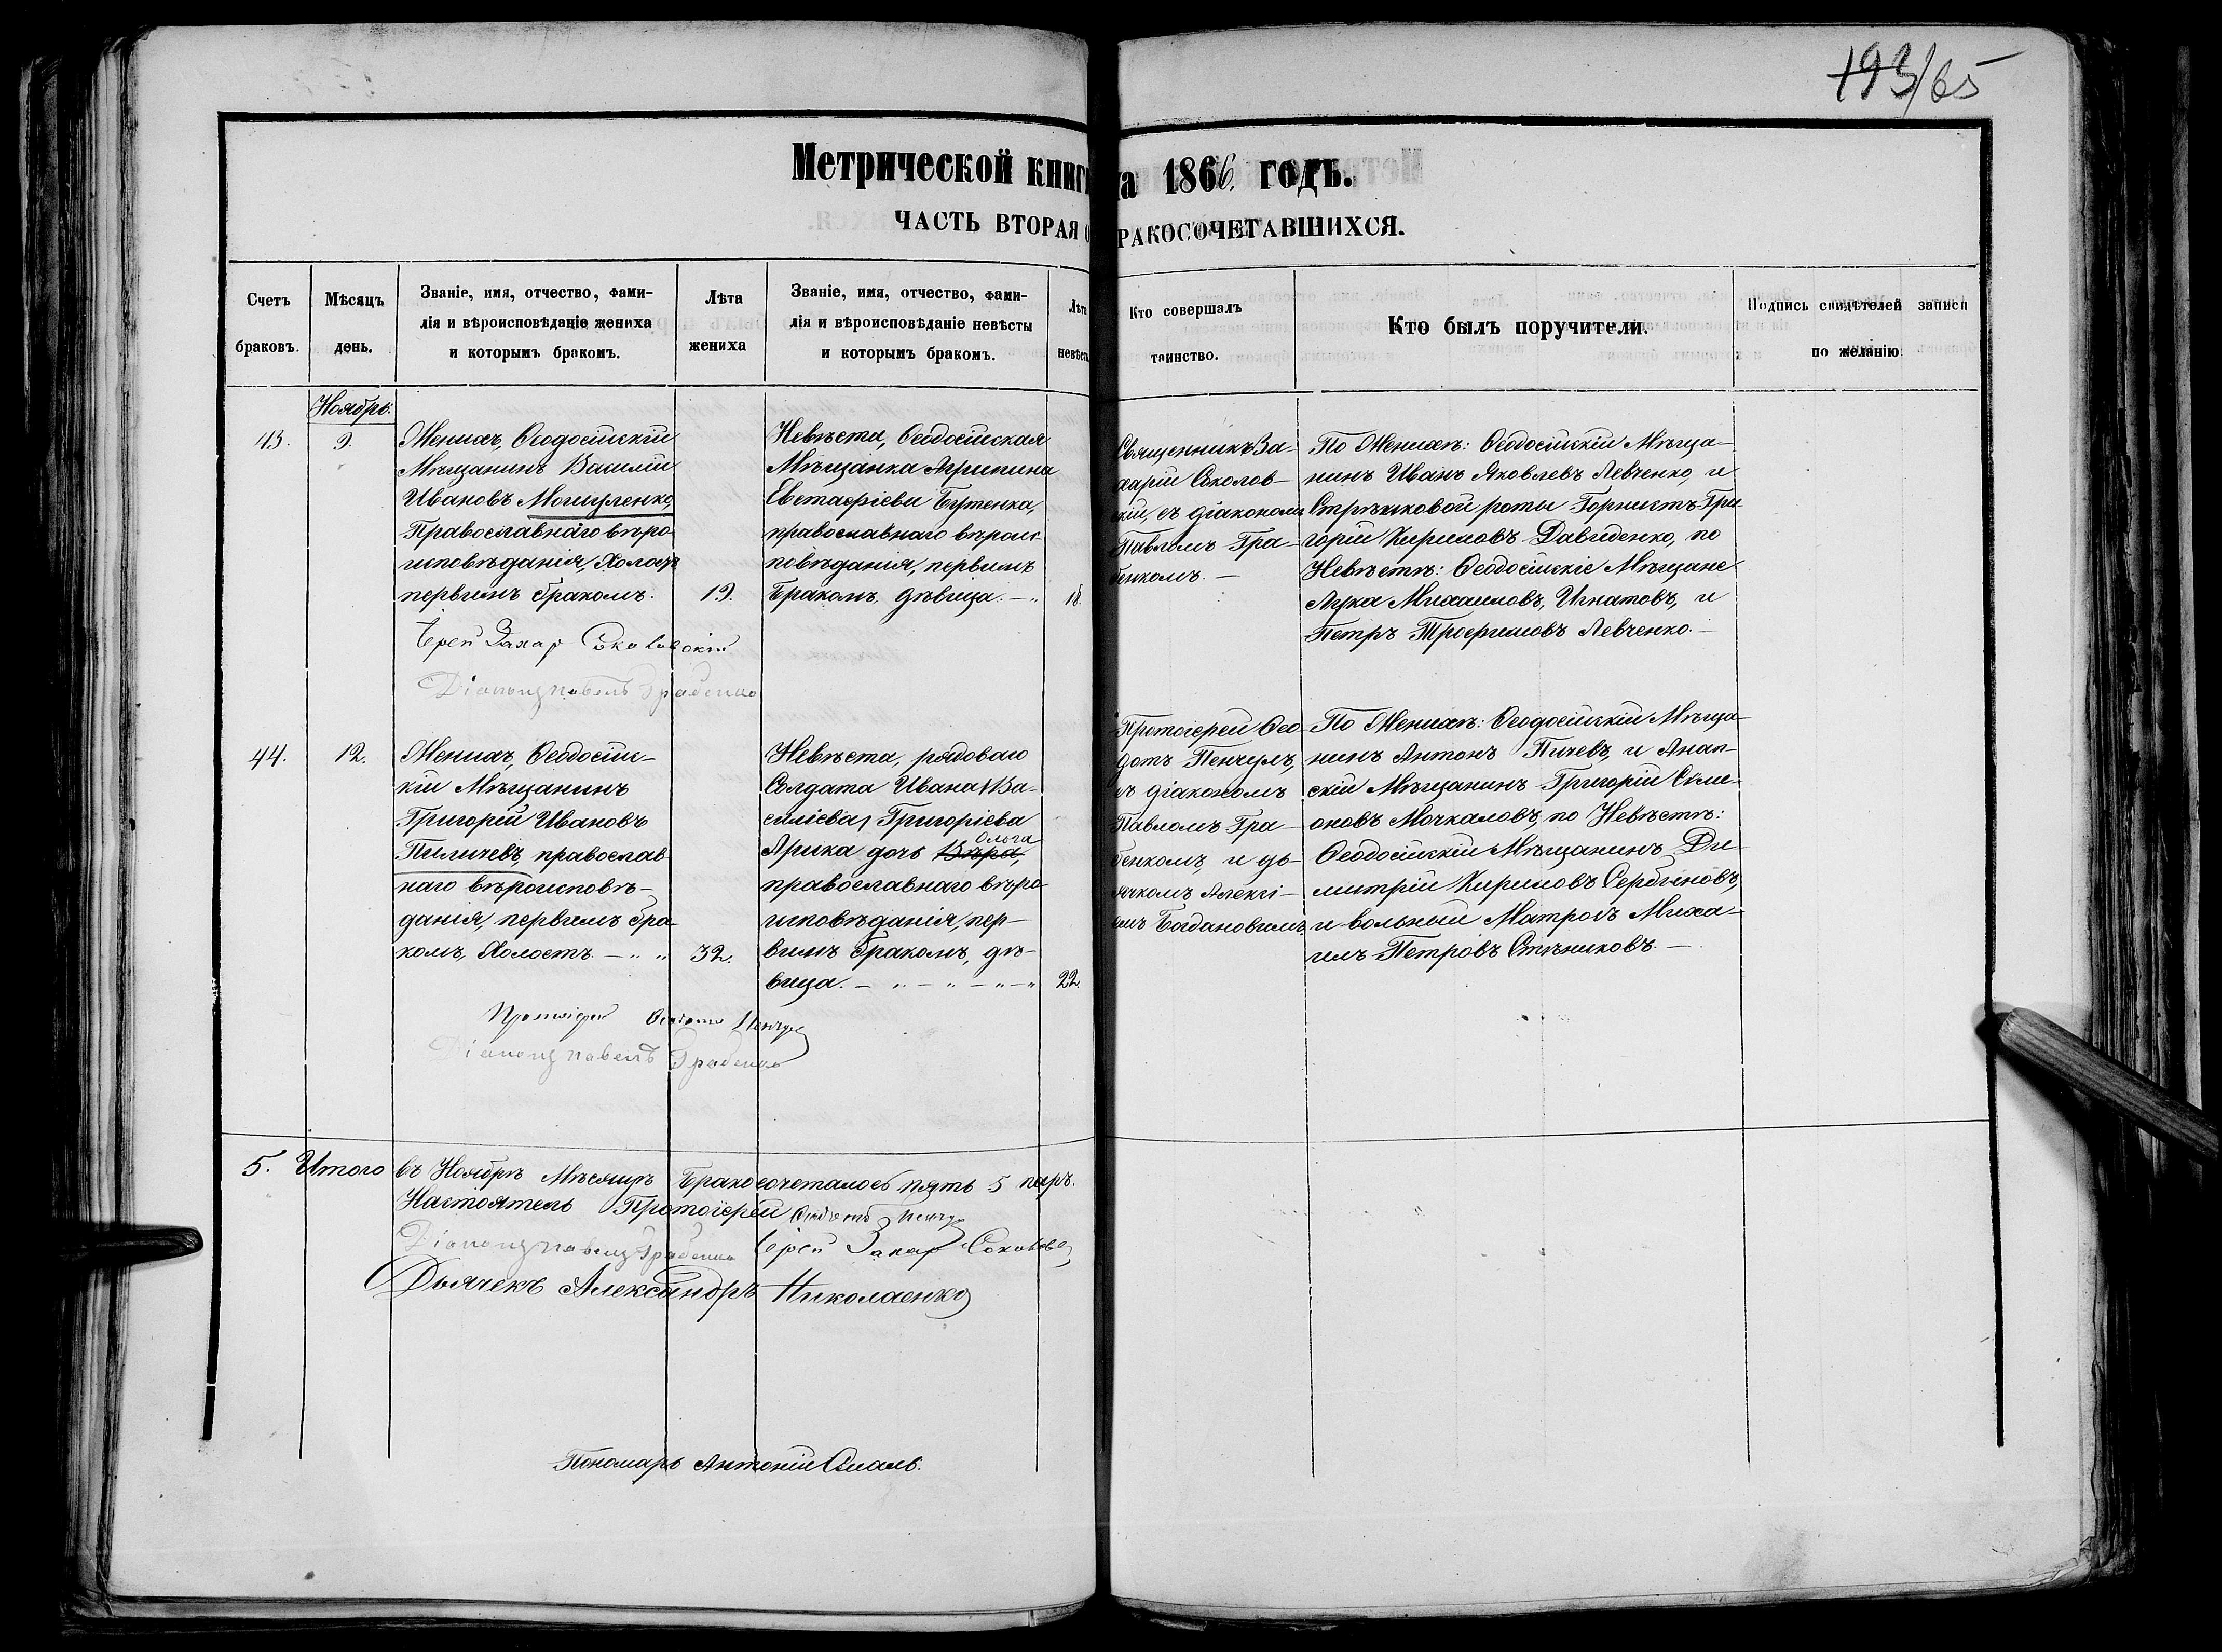 193/65
Метрической книги на 1866. годъ.
ЧАСТЬ ВТОРАЯ О БРАКОСОЧЕТАВШИХСЯ.
Счетъ браковъ.
Мѣсяцъ день.
Званіе, имя, отчество, фами-
лія и вѣроисповѣданіе жениха
и которымъ бракомъ.
Лѣта жениха
Званіе, имя, отчество, фами-
лія и вѣроисповѣданіе невѣсты
и которымъ бракомъ.
Лѣта невѣсты
Кто совершалъ
таинство.
Кто былъ поручители.
Подпись свидѣтелей записи
по желанію
Ноябрь.
43.
9.
Женихъ, Ѳеодосійскій
Мѣщанинъ Василій
Ивановъ Могиленко,
Православнаго вѣро
исповѣданія, Холостъ
первымъ бракомъ.
19.
Іерей Захар Соколовскій
Діаконъ Павелъ Грабенко
Невѣста, Ѳеодосійская
Мѣщанка Агрипина
Евстафіева Бутенка,
православнаго вѣроис
повѣданія, первымъ
Бракомъ, дѣвица. — „
18.
Священникъ За-
харій Соколов-
скій, съ діакономъ
Павломъ Гра-
бенкомъ. —
По Женихѣ: Ѳеодосійскій Мѣща-
нинъ Иванъ Яковлевъ Левченко, и
Стрѣлковой роты Горнистъ Гри-
горій Кириловъ Давиденко, по
Невѣстѣ: Ѳеодосійскіе Мѣщане
Лука Михаиловъ, Игнатовъ, и
Петръ Трофимовъ Левченко. —
44.
12.
Женихъ, Ѳеодосій-
кій Мѣщанинъ
Григорій Ивановъ
Пиличевъ, православ
наго вѣроисповѣ-
данія, первымъ бра-
комъ, Холостъ. — „ „
32.
Протоіерей Ѳеодотъ Пенчулъ
Діаконъ Павелъ Грабенко
Невѣста, рядоваго
Солдата Ивана Ва-
силіева, Григоріева
Ольга
Арика дочь Вѣра,
православнаго вѣро-
исповѣданія, пер-
вымъ бракомъ, дѣ-
вица. — „ — „ — „ — „
22.
Протоіерей Ѳео-
дотъ Пенчулъ,
съ діакономъ
Павломъ Гра-
бенкомъ, и дь-
ячкомъ Алексі-
емъ Богдановымъ.
По Женихѣ: Ѳеодосійскій Мѣща-
нинъ Антонъ Пичевъ, и Анап-
скій Мѣщанинъ Григорій Симе-
оновъ Мочкаловъ, по Невѣстѣ:
Ѳеодосійскій Мѣщанинъ Ди-
митрій Кириловъ Сербиновъ,
и вольный Матросъ Миха-
илъ Петровъ Стѣниковъ. —
5. Итого въ Ноябрѣ Мѣсяцѣ Бракосочеталось пять 5 паръ.
Настоятель Протоіерей Ѳеодотъ Пенчулъ
Діаконъ Павелъ Грабенко Іерей Захар Соколов
Дьячекъ Александръ Николаенко
Пономарь Антоній